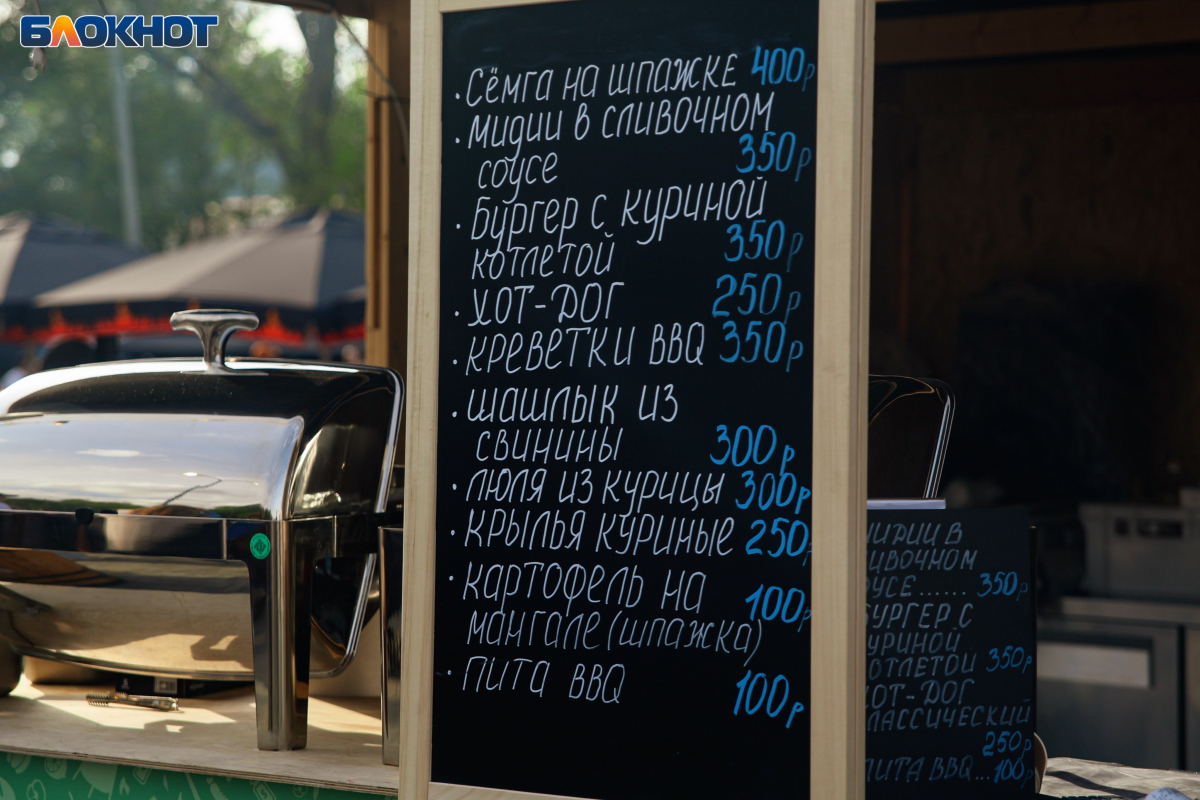 БЛОКНОТ
· Сёмга на шпажке 400р
· мидии в сливочном
соусе 350р
· Бургер с куриной
котлетой 350р
· ХОТ-ДОГ 250р
· креветки BBQ 350р
· шашлык из
свинины 300р
· люля из курицы 300р
· крылья куриные 250р
· картофель на
мангале (шпажка) 100р
· пита BBQ 100р
350р
БУРГЕР С
350р
ХОТ-ДОГ
250р
ПИТА BBQ...100р